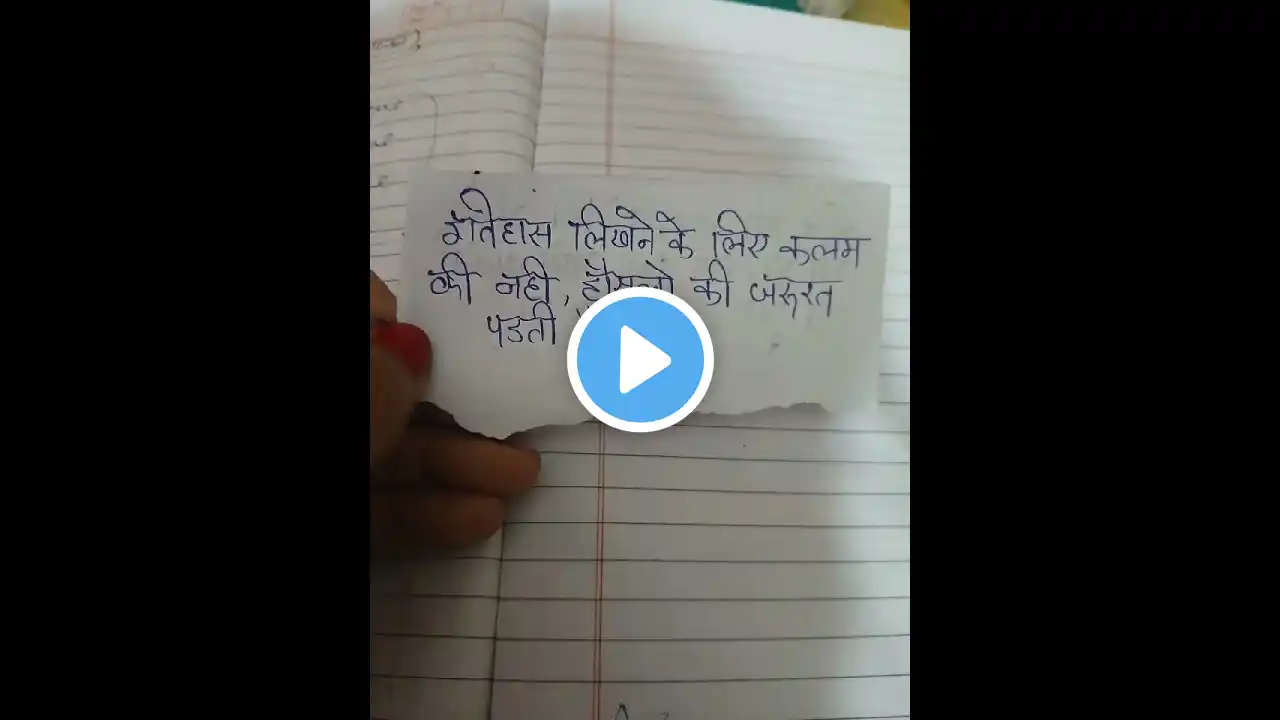 इतिहास लिखने के लिए कलम
की नही, हौसलो की जरूरत
पडती